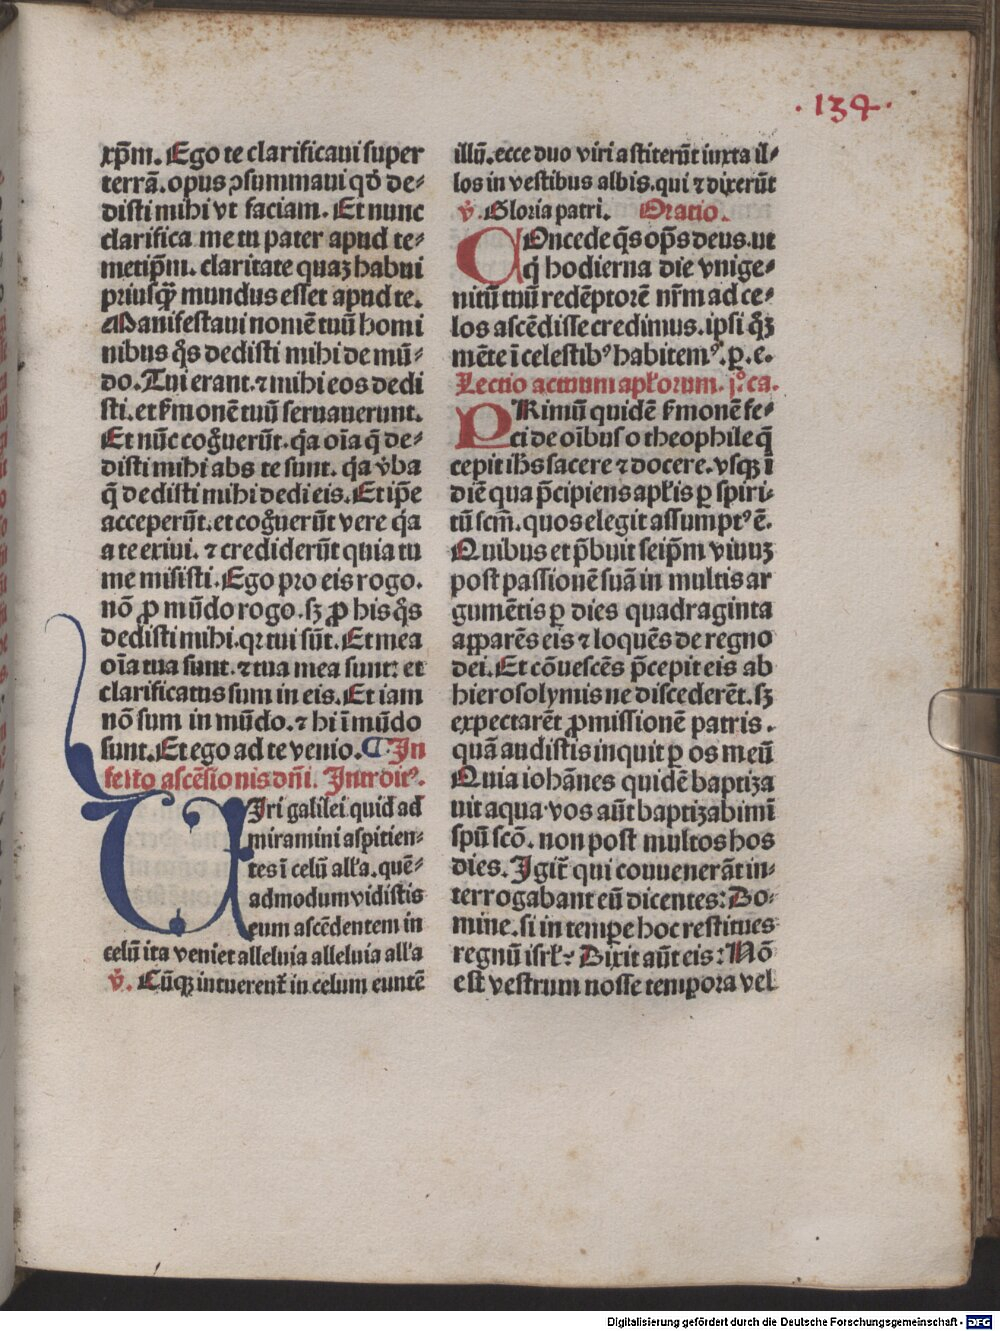 ·134·
xp̄m. Ego te clarificaui super
terrā. opus ꝯsummaui qd̓ de-
disti mihi vt faciam. Et nunc
clarifica me tu pater apud te-
metip̄m. claritate quaꝫ habui
priusꝙ̃ mundus esset apud te.
Manifestaui nomē tuū homi
nibus q̊s dedisti mihi de mū-
do. Tui erant. ⁊ mihi eos dedi
sti. et ẜmonē tuū seruauerunt.
Et nūc cog̃uerūt. q̓a oīa q̄ de-
disti mihi abs te sunt. q̓a v̓ba
q̄ dedisti mihi dedi eis. Et ip̄e
acceperūt. et cog̃uerūt vere q̓a
a te exiui. ⁊ crediderūt quia tu
me misisti. Ego pro eis rogo.
nō ꝓ mūdo rogo. sꝫ ꝓ his q̊s
dedisti mihi. qꝛ tui sūt. Et mea
oīa tua sunt. ⁊ tua mea sunt: et
clarificatus sum in eis. Et iam
nō sum in mūdo. ⁊ hi ī mūdo
sunt. Et ego ad te venio. ¶ In
festo ascēsionis dn̄i. Introitꝰ.
VIri galilei quid ad
miramini aspitien-
tes ī celū alła. quē-
admodum vidistis
eum ascēdentem in
celū ita veniet alleluia alleluia alła
v̓. Cūqꝫ intuerent̃ in celum euntē
illū. ecce duo viri astiterūt iuxta il-
los in vestibus albis. qui ⁊ dixerūt
v̓. Gloria patri. Oratio.
COncede q̄s op̄s deus. ut
q̓ hodierna die vnige-
nitū tuū redēptorē nr̄m ad ce-
los ascēdisse credimus. ipsi q̊ꝫ
mēte ī celestibꝰ habitemꝰ. ꝑ. e.
Lectio actuum apłorum. j.º ca.
PRimū quidē ẜmonē fe-
ci de oībus o theophile q̄
cepit ihs̄ facere ⁊ docere. vsqꝫ ī
diē qua p̄cipiens apłis ꝑ spiri-
tū scm̄. quos elegit assumptꝰ ē.
Quibus et p̄buit seip̄m viuuꝫ
post passionē suā in multis ar
gumētis ꝑ dies quadraginta
apparēs eis ⁊ loquēs de regno
dei. Et cōuescēs p̄cepit eis ab
hierosolymis ne discederēt. sꝫ
expectarēt ꝓmissionē patris.
quā audistis inquit ꝑ os meū
Quia iohānes quidē baptiza
uit aqua. vos aūt baptizabimī
spū scō. non post multos hos
dies. Igit̃ qui conuenerāt in-
terrogabant eū dicentes: Do-
mine. si in tempe hoc restitues
regnū isrł: Dixit aūt eis: Nō
est vestrum nosse tempora vel
Digitalisierung gefördert durch die Deutsche Forschungsgemeinschaft - DFG